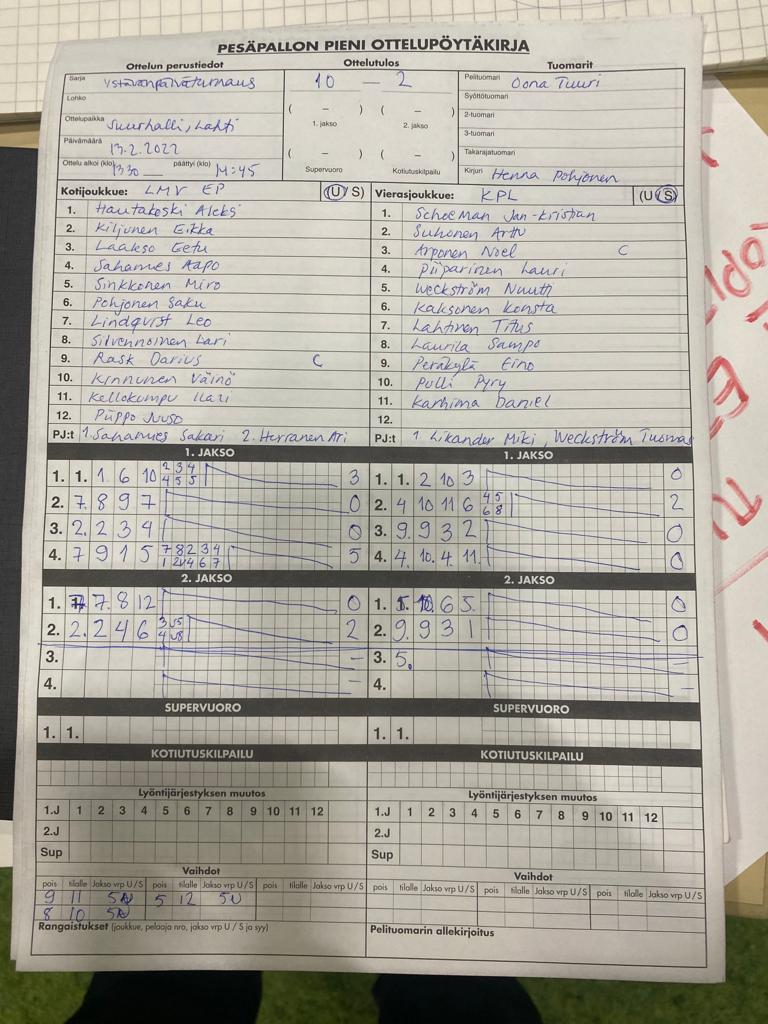 PESÄPALLON PIENI OTTELUPÖYTÄKIRJA
Ottelun perustiedot
Sarja Ystävänpäiväturnaus
Lohko
Ottelupaikka Suurhalli, Lahti
Päivämäärä 13.2.2022
Ottelu alkoi (klo) 1330 päättyi (klo) 14:45
Ottelutulos
10 — 2
( – ) ( – )
1. jakso 2. jakso
( – ) ( – )
Supervuoro Kotiutuskilpailu
Tuomarit
Pelituomari Oona Tuuri
Syöttötuomari
2-tuomari
3-tuomari
Takarajatuomari
Kirjuri Henna Pohjonen
Kotijoukkue: LMV EP (U/S)
1. Hautakoski Aleksi
2. Kiljunen Eikka
3. Laakso Eetu
4. Sahames Aapo
5. Sinkkonen Miro
6. Pohjonen Saku
7. Lindqvist Leo
8. Silvennoinen Lari
9. Rask Darius C
10. Kinnunen Väinö
11. Kellokumpu Ilari
12. Piippo Juuso
PJ:t 1. Sahames Sakari 2. Herranen Ari
Vierasjoukkue: KPL (U/S)
1. Schoeman Jan-Kristian
2. Suhonen Arttu
3. Arponen Noel C
4. Piiparinen Lauri
5. Weckström Nuutti
6. Kaksonen Konsta
7. Lahtinen Titus
8. Laurila Sampo
9. Peräkylä Eino
10. Pulli Pyry
11. Karhima Daniel
12.
PJ:t 1. Likander Miki, Weckström Tuomas
1. JAKSO
1. 1. 1 6 10 2 3 4 3
4 5 5
2. 7. 8 9 7 0
3. 2. 2 3 4 0
4. 7 9 1 5 7 8 2 3 4 5
6 7
1. JAKSO
1. 1. 2 10 3 0
2. 4 10 11 6 4 5 2
6 8
3. 9. 9 3 2 0
4. 4. 10. 4. 11. 0
2. JAKSO
1. 7. 8 12 0
2. 2. 2 4 6 2
3. –
4. –
2. JAKSO
1. 6 5. 0
2. 9. 9 3 1 0
3. 5. –
4. –
SUPERVUORO
1. 1.
SUPERVUORO
1. 1.
KOTIUTUSKILPAILU
KOTIUTUSKILPAILU
Lyöntijärjestyksen muutos
1.J 1 2 3 4 5 6 7 8 9 10 11 12
2.J
Sup
Lyöntijärjestyksen muutos
1.J 1 2 3 4 5 6 7 8 9 10 11 12
2.J
Sup
Vaihdot
pois tilalle Jakso vrp U/S pois tilalle Jakso vrp U/S pois tilalle Jakso vrp U/S
9 11 5 12 5U
8 10
Vaihdot
pois tilalle Jakso vrp U/S pois tilalle Jakso vrp U/S pois tilalle Jakso vrp U/S
Rangaistukset (joukkue, pelaaja nro, jakso vrp U / S ja syy)
Pelituomarin allekirjoitus